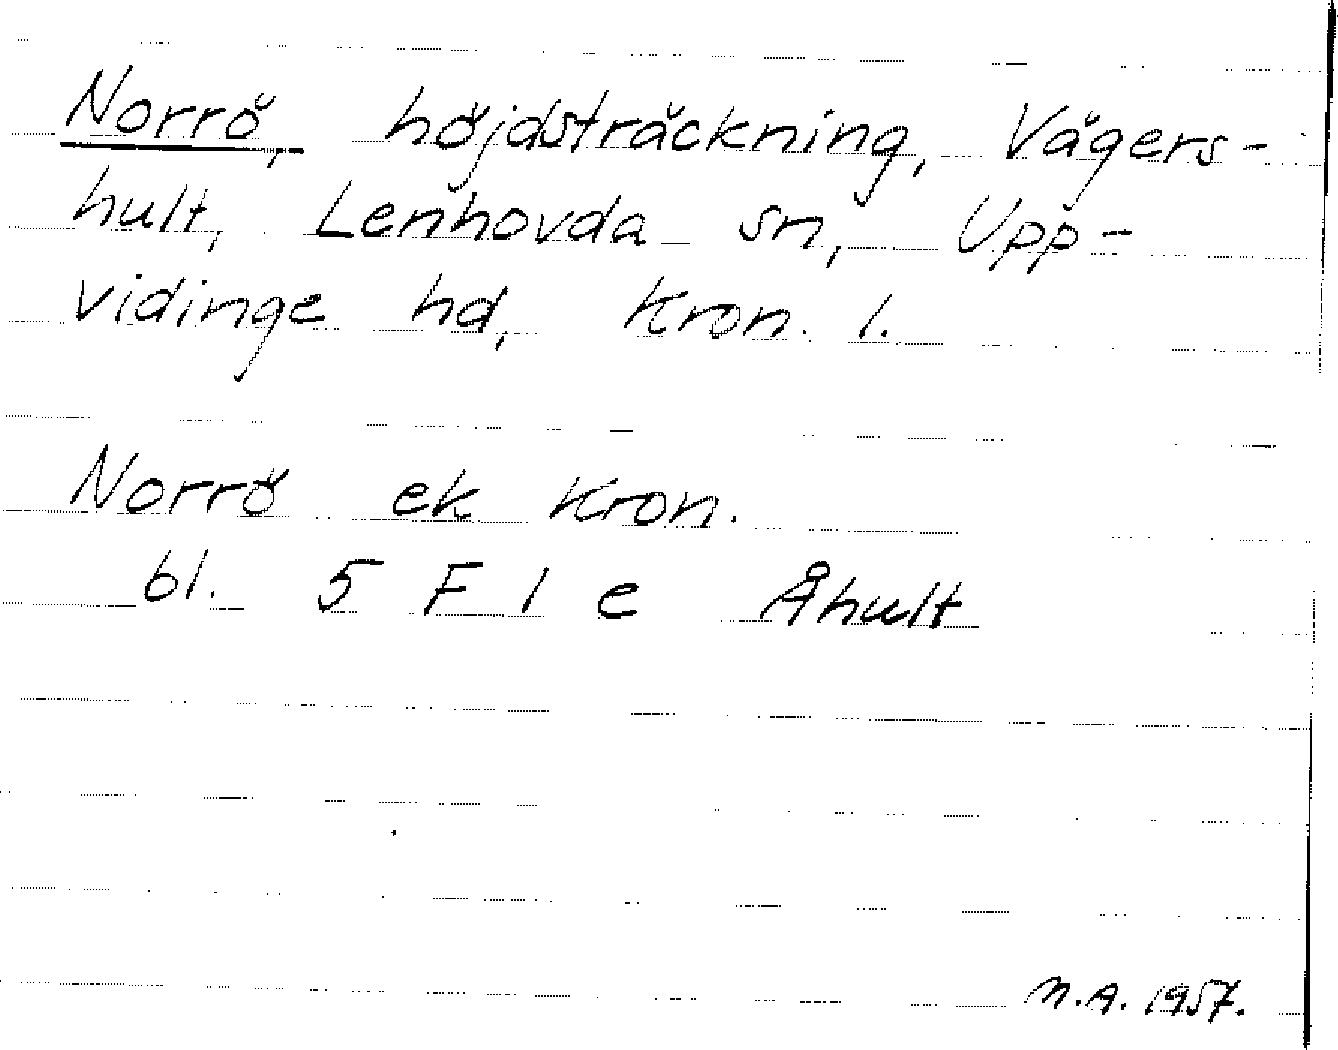 Norrö, höjdsträckning, Vägers-
hult, Lenhovda sn, Upp-
vidinge hd, Kron. l.
Norrö ek Kron.
bl. 5 F 1 e Åhult
N.A. 1957.